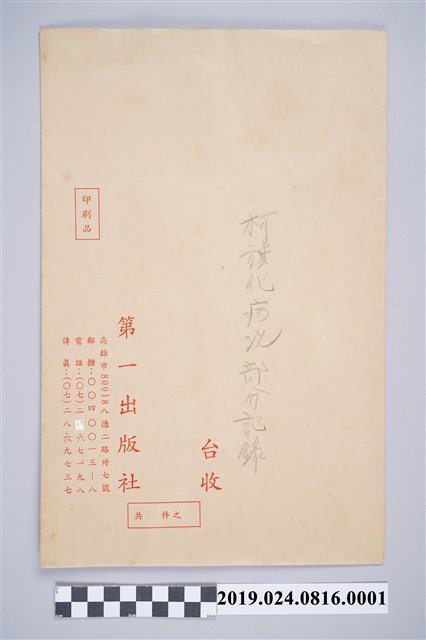 柯旗化病況部分記錄
台收
印刷品
第一出版社
高雄市80018八德二路卅七號
郵撥：〇〇四〇〇一三—八
電話：（〇七）二 六七一一九八
傳真：（〇七）二八六九七三七
共 件之
2019.024.0816.0001